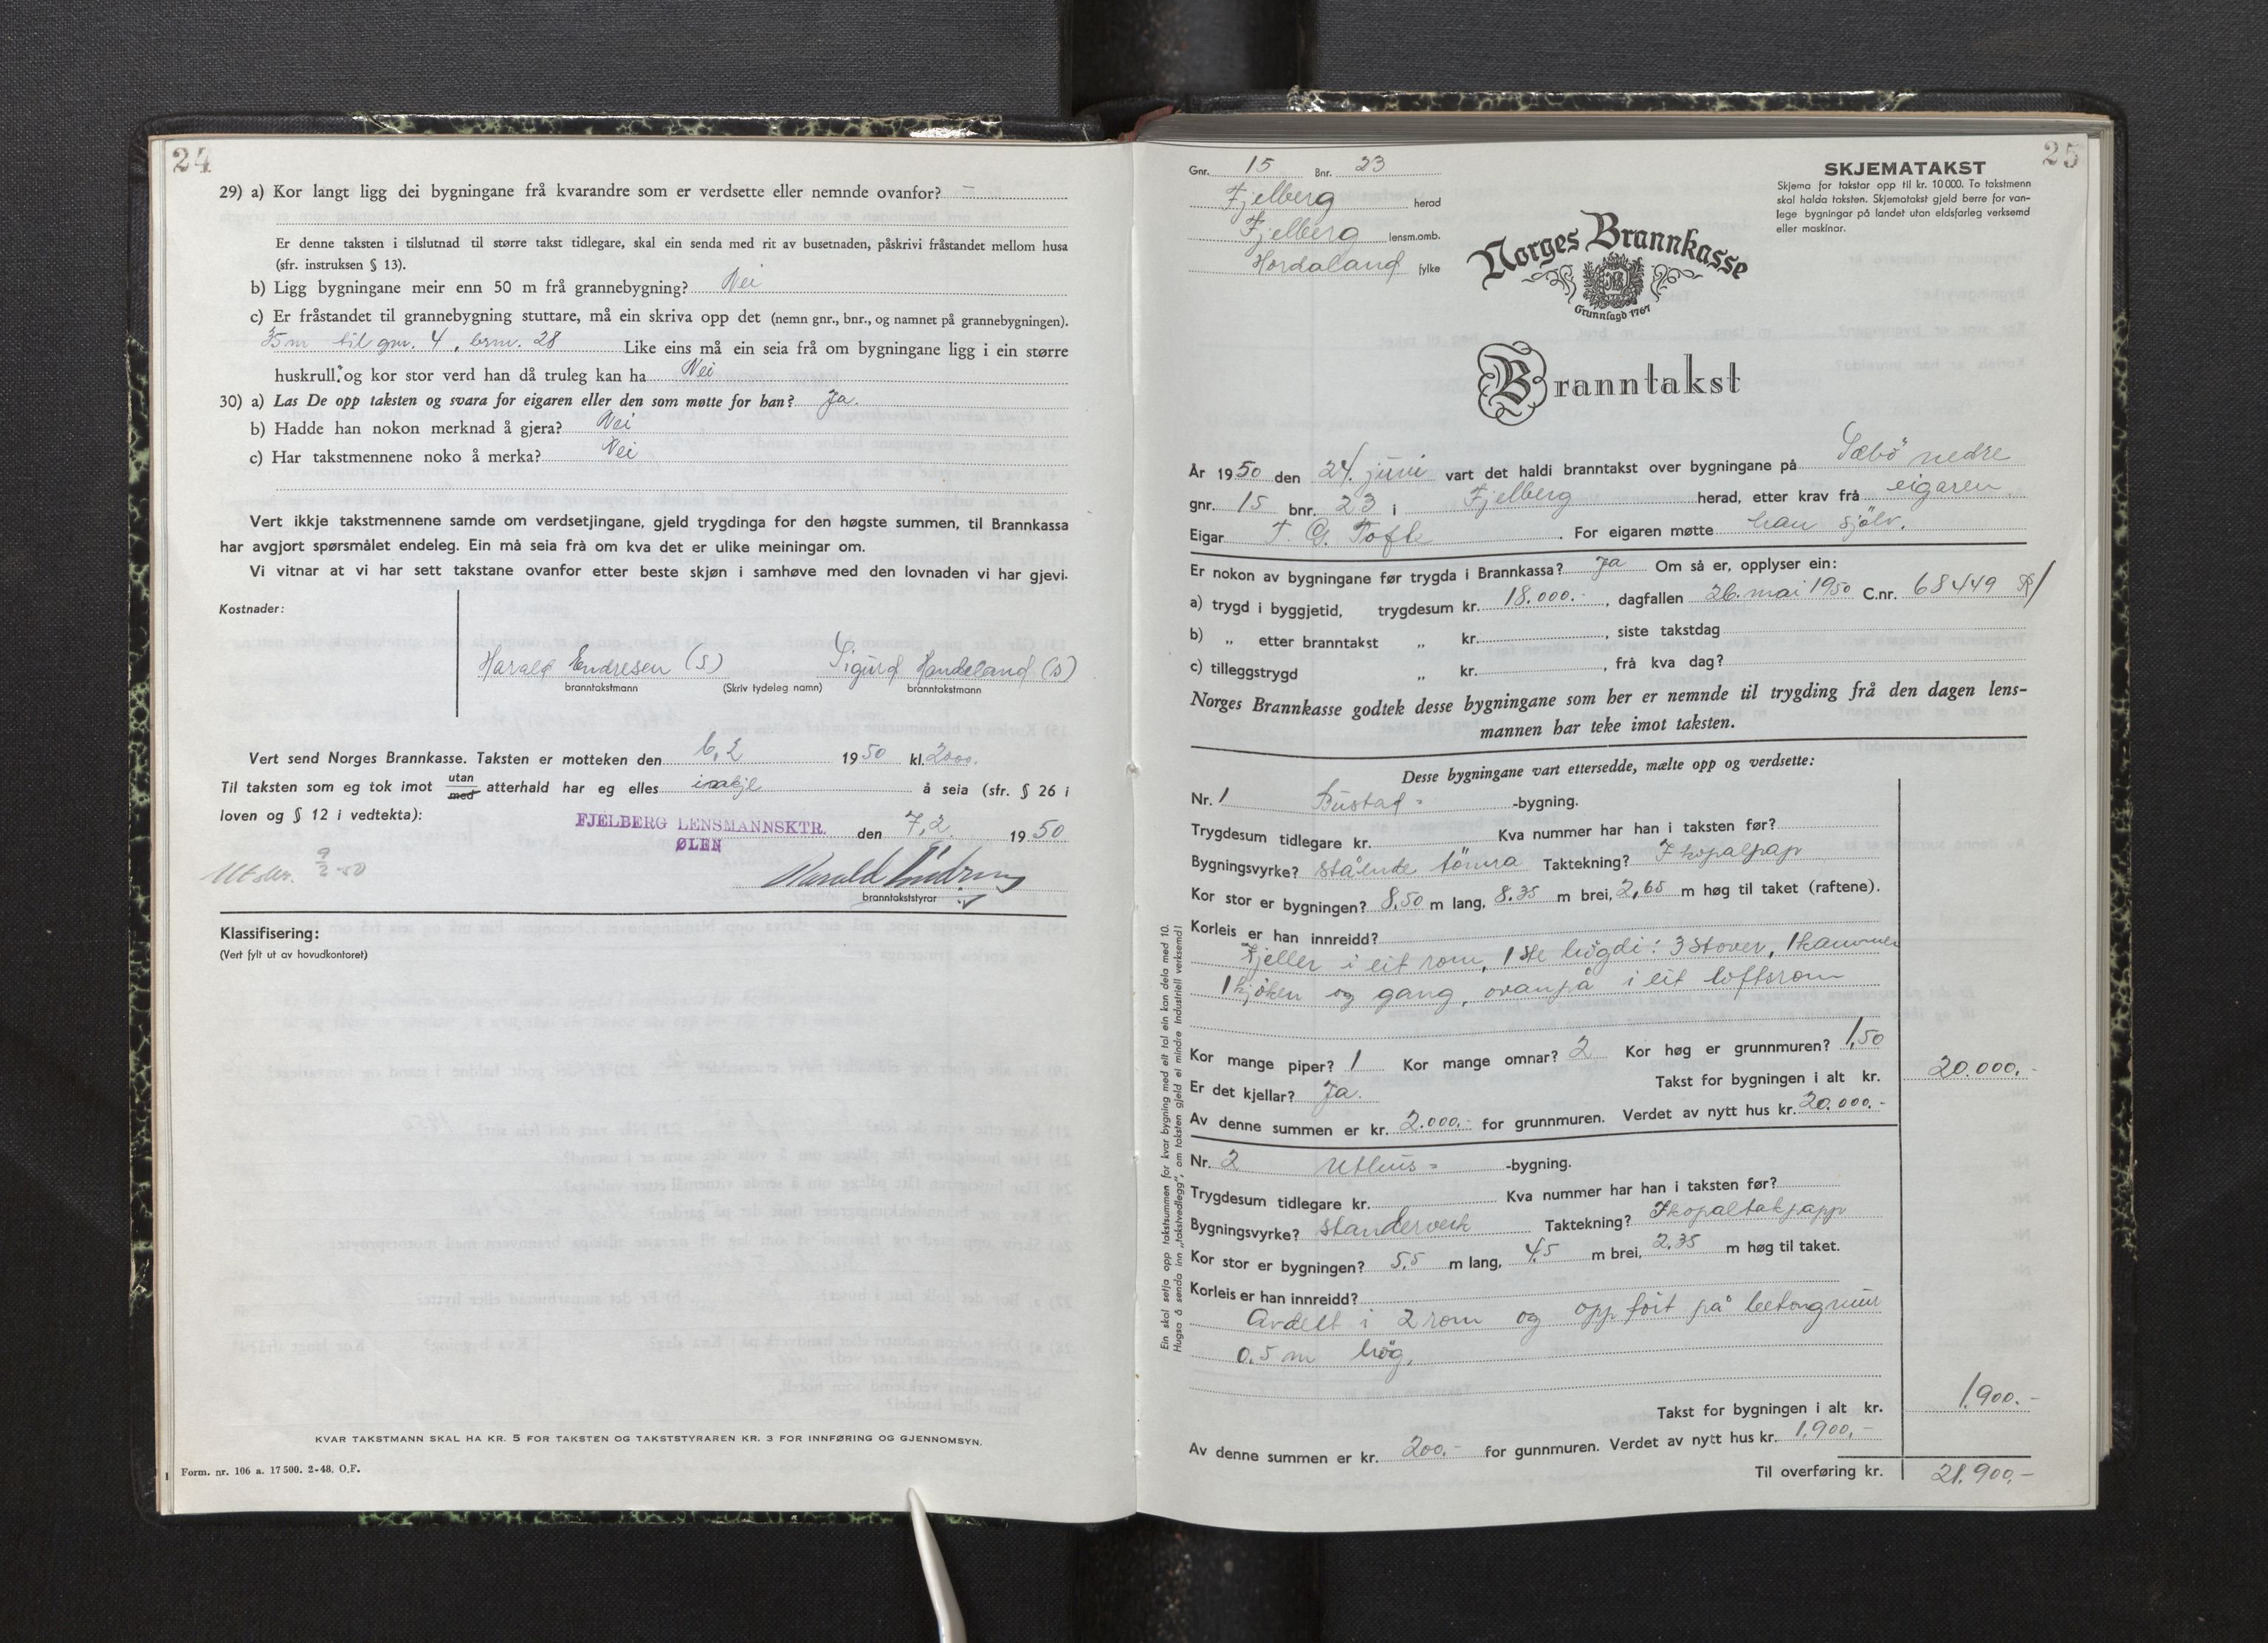 24
29) a) Kor langt ligg dei bygningane frå kvarandre som er verdsette eller nemnde ovanfor? –
Er denne taksten i tilslutnad til større takst tidlegare, skal ein senda med rit av busetnaden, påskrivi fråstandet mellom husa
(sfr. instruksen § 13).
b) Ligg bygningane meir enn 50 m frå grannebygning? Nei
c) Er fråstandet til grannebygning stuttare, må ein skriva opp det (nemn gnr., bnr., og namnet på grannebygningen).
35 m til gnr. 4, brnr. 28 Like eins må ein seia frå om bygningane ligg i ein større
huskrull, og kor stor verd han då truleg kan ha Nei
30) a) Las De opp taksten og svara for eigaren eller den som møtte for han? Ja.
b) Hadde han nokon merknad å gjera? Nei
c) Har takstmennene noko å merka? Nei
Vert ikkje takstmennene samde om verdsetjingane, gjeld trygdinga for den høgste summen, til Brannkassa
har avgjort spørsmålet endeleg. Ein må seia frà om kva det er ulike meiningar om.
Vi vitnar at vi har sett takstane ovanfor etter beste skjøn i samhøve med den lovnaden vi har gjevi.
Kostnader:
Harald Endresen (s) Sigurd Handeland (s)
branntakstmann (Skriv tydeleg namn) branntakstmann
Vert send Norges Brannkasse. Taksten er motteken den 6,2 1950 kl. 2000.
Til taksten som eg tok imot utan med atterhald har eg elles inkje å seia (sfr. § 26 i
loven og § 12 i vedtekta):
FJELBERG LENSMANNSKTR. den 7,2. 1950
ØLEN
Utskr. 9/2-50
Harald Endresen
branntakststyrar
Klassifisering:
(Vert fylt ut av hovudkontoret)
KVAR TAKSTMANN SKAL HA KR. 5 FOR TAKSTEN OG TAKSTSTYRAREN KR. 3 FOR INNFØRING OG GJENNOMSYN.
1 Form. nr. 106 a. 17 500. 2-48. O.F.
25
Gnr. 15 Bnr. 23
Fjelberg herad
Fjelberg lensm.omb.
Hordaland fylke
SKJEMATAKST
Skjema for takstar opp til kr. 10 000. To takstmenn
skal halda taksten. Skjematakst gjeld berre for van-
lege bygningar på landet utan eldsfarleg verksemd
eller maskinar.
Norges Brannkasse
Grunnlagd 1767
Branntakst
År 1950 den 24. juni vart det haldi branntakst over bygningane på Sæbö nedre
gnr. 15 bnr. 23 i Fjelberg herad, etter krav frå eigaren
Eigar T. G. Tofte. For eigaren møtte han sjölv.
Er nokon av bygningane før trygda i Brannkassa? Ja Om så er, opplyser ein:
a) trygd i byggjetid, trygdesum kr. 18.000.-, dagfallen 26. mai 1950 C.nr. 68449
b) „ etter branntakst „ kr. , siste takstdag
c) tilleggstrygd „ kr. , frå kva dag?
Norges Brannkasse godtek desse bygningane som her er nemnde til trygding frå den dagen lens-
mannen har teke imot taksten.
Desse bygningane vart ettersedde, mælte opp og verdsette:
Nr. 1 Bustad- -bygning.
Trygdesum tidlegare kr. Kva nummer har han i taksten før?
Bygningsvyrke? stående tömra Taktekning? Ikopalpap
Kor stor er bygningen? 8,50 m lang, 8.35 m brei, 2,65 m høg til taket (raftene).
Korleis er han innreidd?
Kjeller i eit rom, 1ste högdi: 3 stover, 1 kammer
1 kjöken og gang, ovanpå i eit loftsrom
Kor mange piper? 1 Kor mange omnar? 2 Kor høg er grunnmuren? 1,50
Er det kjellar? Ja. Takst for bygningen i alt kr. 20.000.-
Av denne summen er kr. 2.000.- for grunnmuren. Verdet av nytt hus kr. 20.000.-
Nr. 2 Uthus- -bygning.
Trygdesum tidlegare kr. Kva nummer har han i taksten før?
Bygningsvyrke? standerverk Taktekning? Ikopaltakpapp
Kor stor er bygningen? 5.5 m lang, 4.5 m brei, 2.35 m høg til taket.
Korleis er han innreidd?
Avdelt i 2 rom og oppfört på betongmur
0.5 m hög.
Takst for bygningen i alt kr. 1.900.-
Av denne summen er kr. 200.- for gunnmuren. Verdet av nytt hus kr. 1.900,-
Til overføring kr. 21.900,-
Ein skal setja opp takstsummen for kvar bygning med eit tal ein kan dela med 10.
Hugsa å senda inn „takstvedlegg", om taksten gjeld ei mindre industriell verksemd!